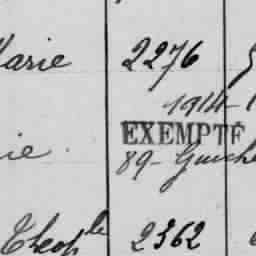 Marie 2276
1914
EXEMPTÉ
ie. 89 - Guiche
Théop le 2362